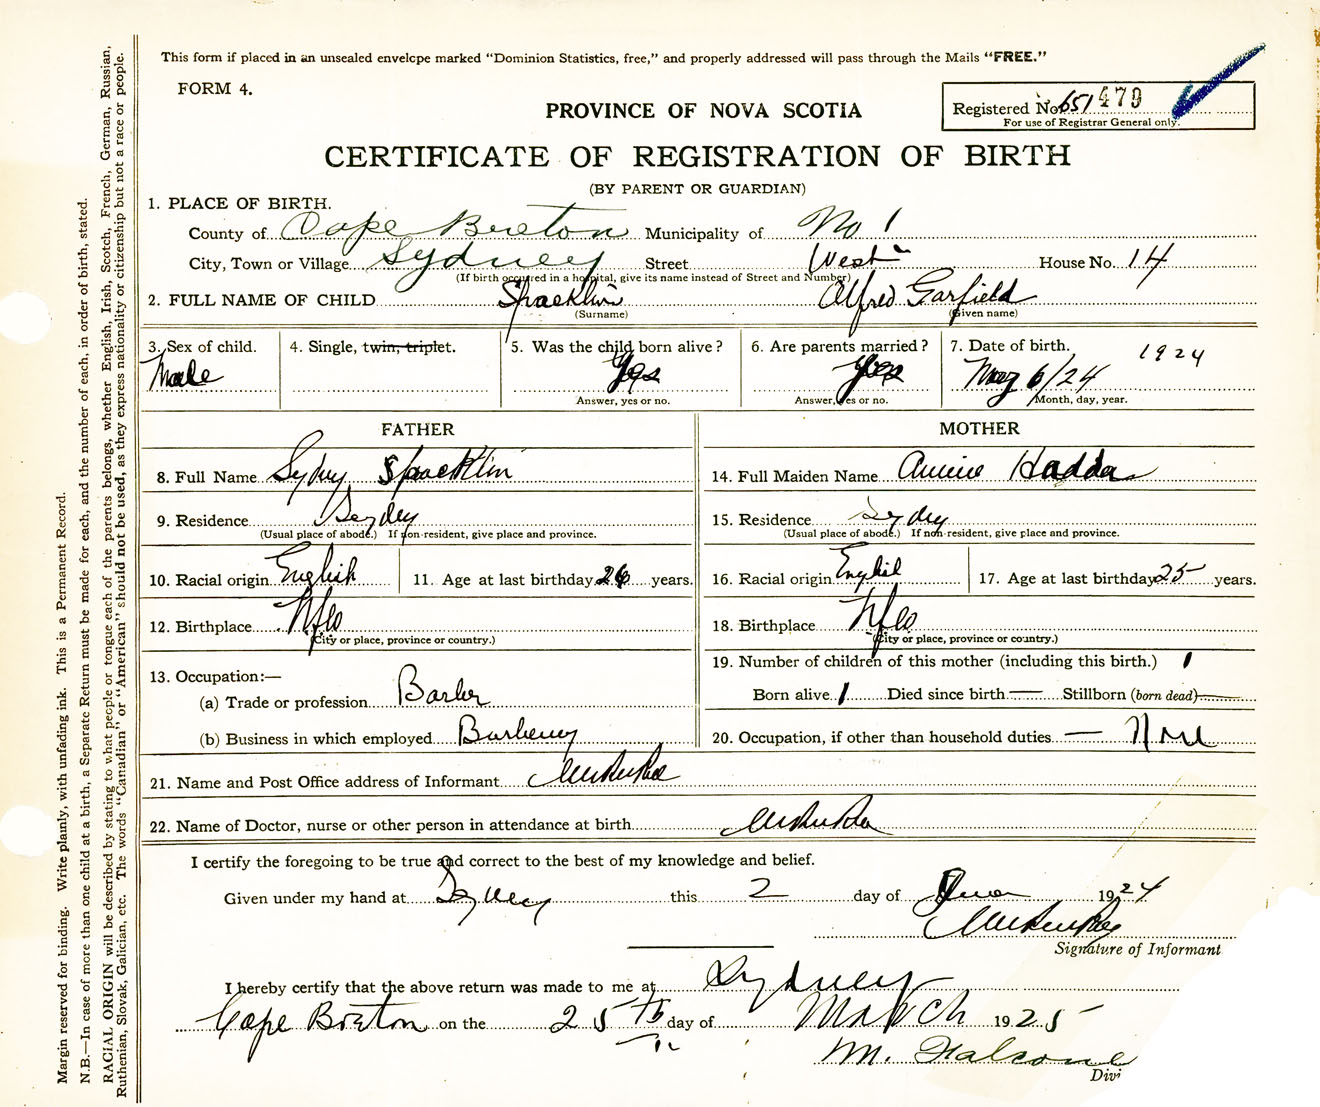 This form if placed in an unsealed envelope marked "Dominion Statistics, free," and properly addressed will pass through the Mails "FREE."
FORM 4.
PROVINCE OF NOVA SCOTIA
Registered No. 651 479
For use of Registrar General only.
CERTIFICATE OF REGISTRATION OF BIRTH
(BY PARENT OR GUARDIAN)
1. PLACE OF BIRTH.
County of Cape Breton Municipality of No 1
City, Town or Village Sydney Street West House No. 14
(If birth occurred in a hospital, give its name instead of Street and Number)
2. FULL NAME OF CHILD Spracklin Alfred Garfield
(Surname) (Given name)
3. Sex of child. 4. Single, twin, triplet. 5. Was the child born alive? 6. Are parents married? 7. Date of birth. 1924
Male Yes Yes May 6/24
Answer, yes or no. Answer, yes or no. Month, day, year.
FATHER MOTHER
8. Full Name Sydney Spracklin 14. Full Maiden Name Annie
9. Residence Sydney 15. Residence Sydney
(Usual place of abode.) If non-resident, give place and province. (Usual place of abode.) If non-resident, give place and province.
10. Racial origin English 11. Age at last birthday 26 years. 16. Racial origin English 17. Age at last birthday 25 years.
12. Birthplace Nfld 18. Birthplace Nfld
(City or place, province or country.) (City or place, province or country.)
19. Number of children of this mother (including this birth.) 1
13. Occupation:—
(a) Trade or profession Barber Born alive 1 Died since birth — Stillborn (born dead) —
(b) Business in which employed 20. Occupation, if other than household duties —
21. Name and Post Office address of Informant
22. Name of Doctor, nurse or other person in attendance at birth
I certify the foregoing to be true and correct to the best of my knowledge and belief.
Given under my hand at Sydney this 2 day of 1924
Signature of Informant
I hereby certify that the above return was made to me at Sydney
Cape Breton on the 25th day of March 1925
M. Falcone
Divi
Margin reserved for binding. Write plainly, with unfading ink. This is a Permanent Record.
N.B.—In case of more than one child at a birth, a Separate Return must be made for each, and the number of each, in order of birth, stated.
RACIAL ORIGIN will be described by stating to what people or tongue each of the parents belongs, whether English, Irish, Scotch, French, German, Russian,
Ruthenian, Slovak, Galician, etc. The words "Canadian" or "American" should not be used, as they express nationality or citizenship but not a race or people.